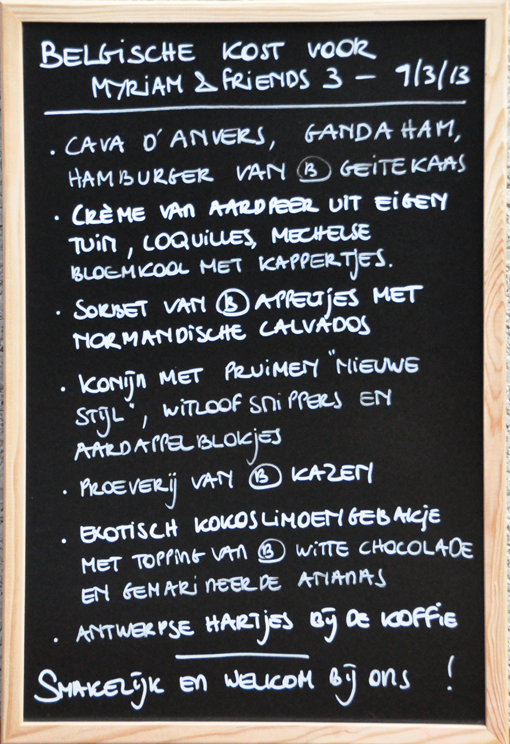 BELGISCHE KOST VOOR
MYRIAM & FRIENDS 3 – 9/3/13
• CAVA D'ANVERS, GANDA HAM,
HAMBURGER VAN Ⓑ GEITEKAAS
• CRÈME VAN AARDPEER UIT EIGEN
TUIN, COQUILLES, MECHELSE
BLOEMKOOL MET KAPPERTJES.
• SORBET VAN Ⓑ APPELTJES MET
NORMANDISCHE CALVADOS
• KONIJN MET PRUIMEN "NIEUWE
STIJL", WITLOOFSNIPPERS EN
AARDAPPELBLOKJES
• PROEVERIJ VAN Ⓑ KAZEN
• EXOTISCH KOKOSLIMOENGEBAKJE
MET TOPPING VAN Ⓑ WITTE CHOCOLADE
EN GEMARINEERDE ANANAS
• ANTWERPSE HARTJES BIJ DE KOFFIE
SMAKELIJK EN WELKOM BIJ ONS !